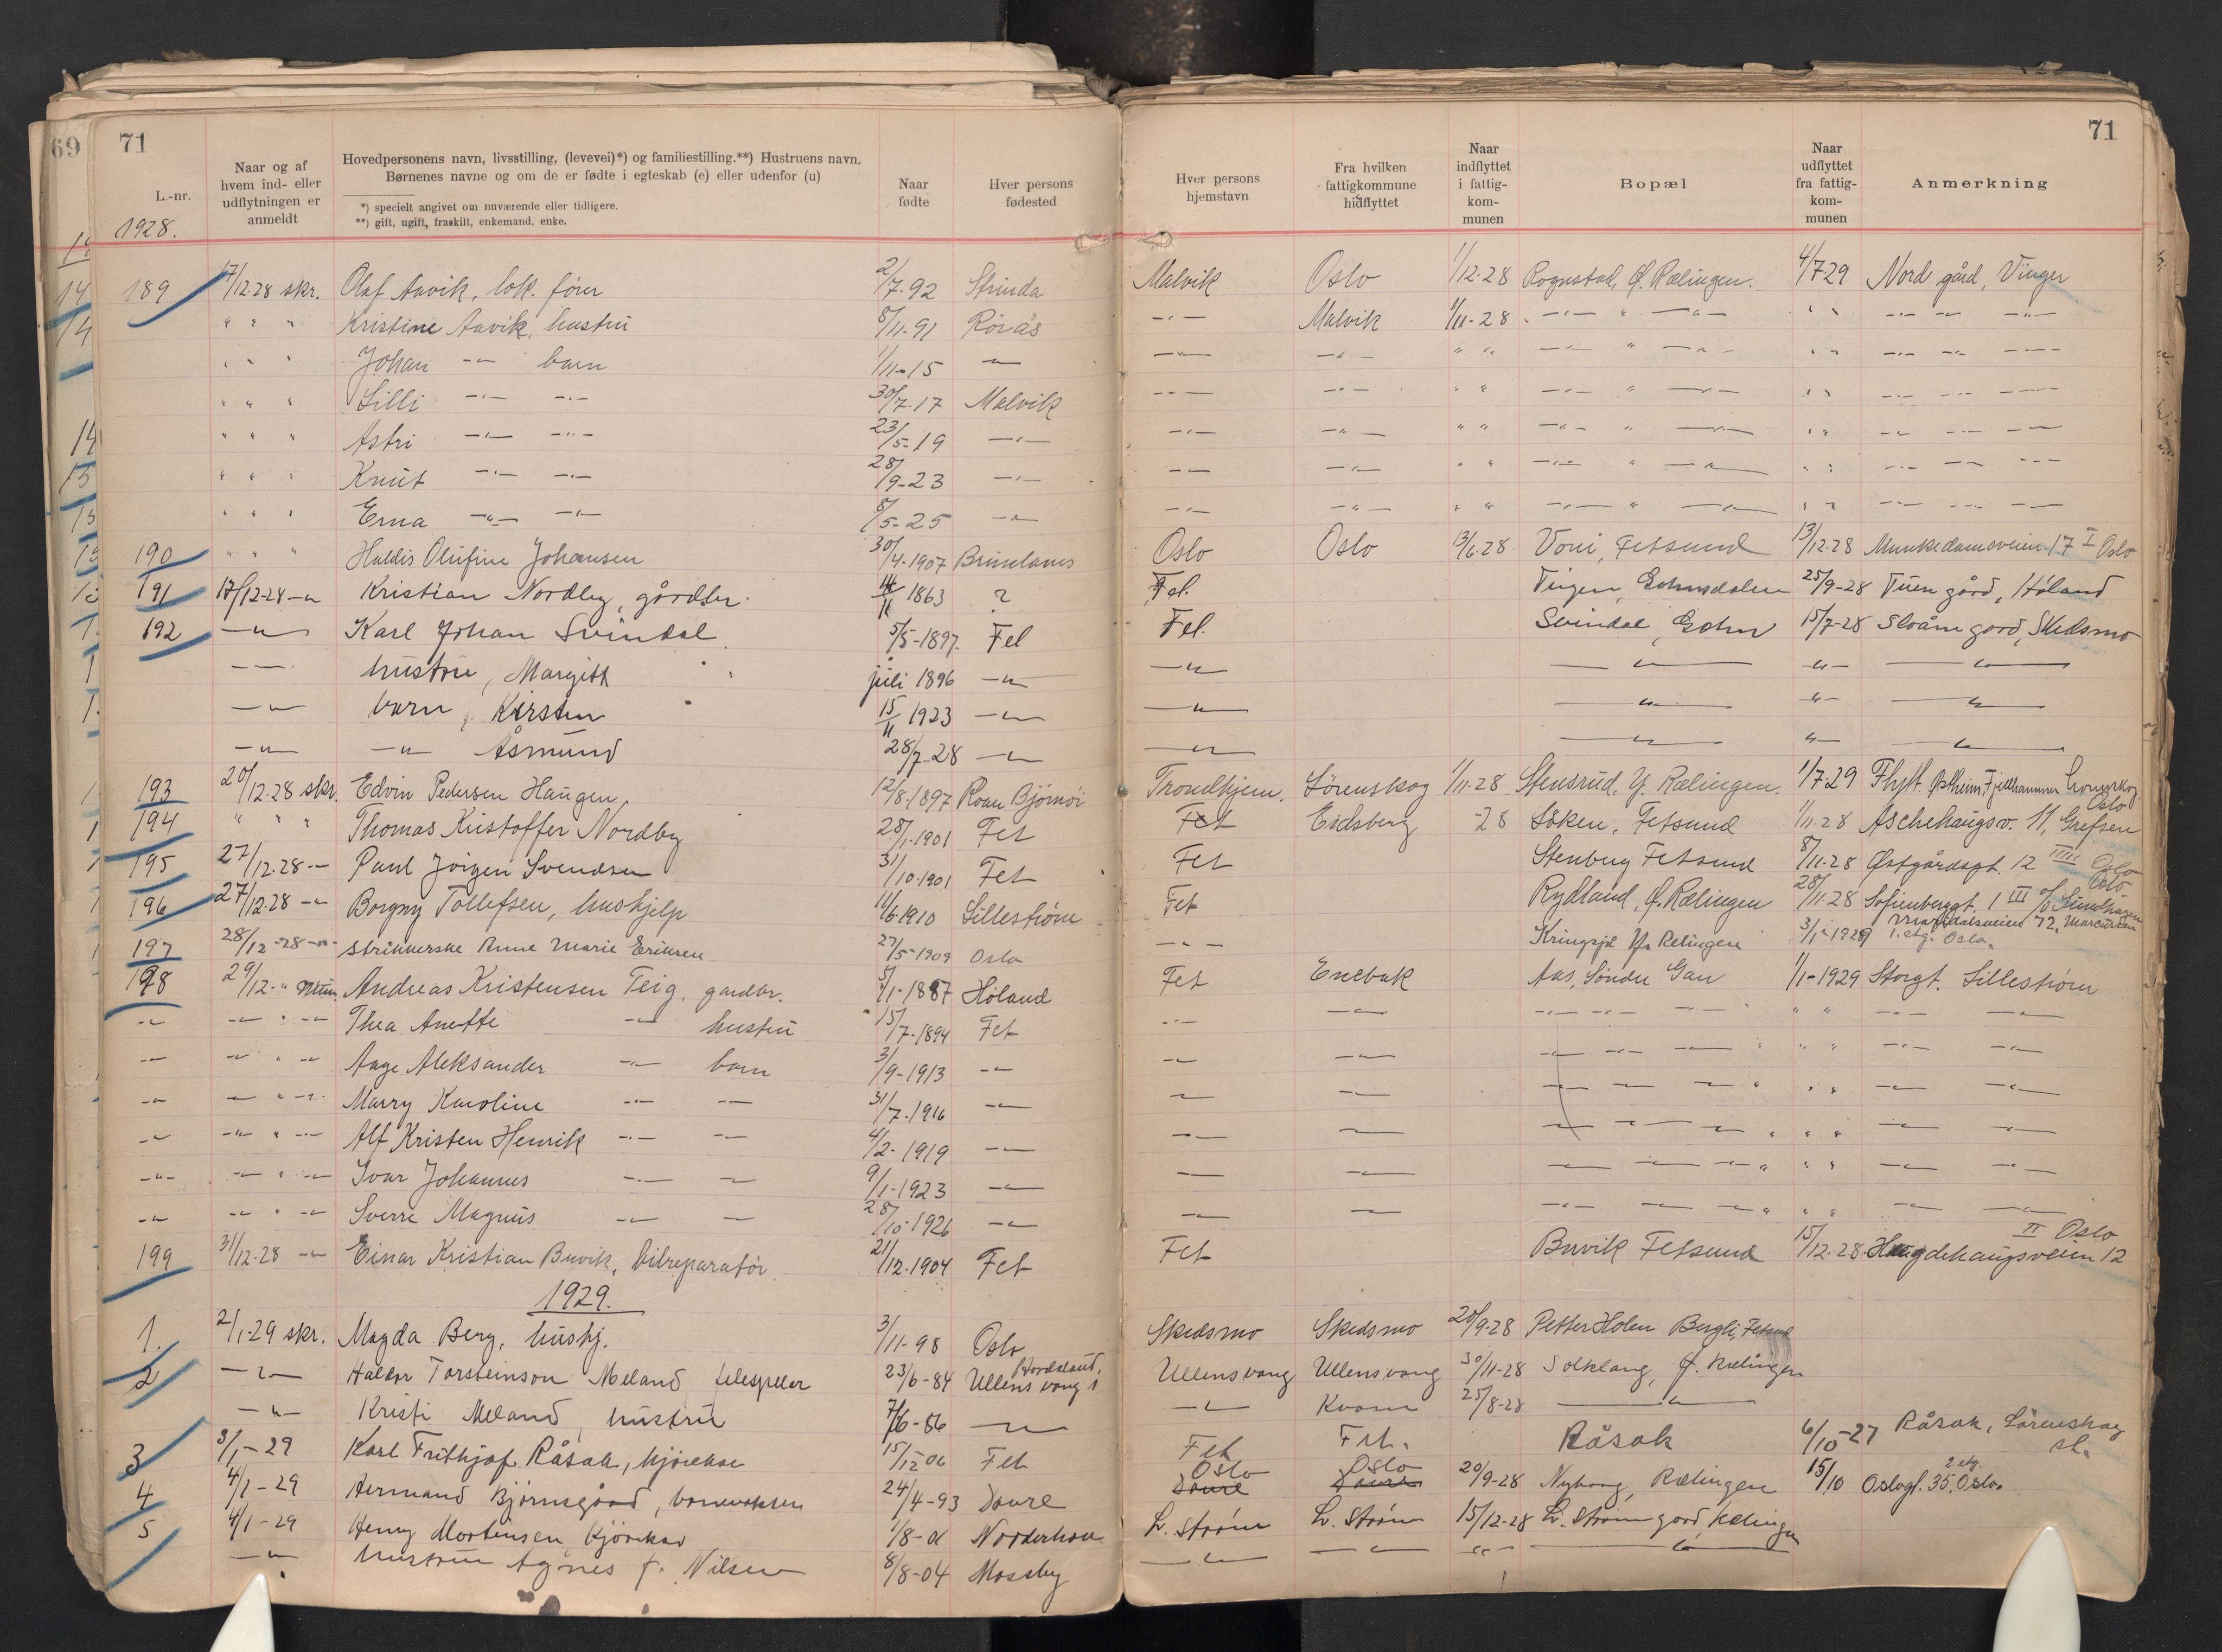 69 71
71
L.-nr.
Naar og af hvem ind- eller udflytningen er anmeldt
Hovedpersonens navn, livsstilling, (levevei)*) og familiestilling.**) Hustruens navn. Børnenes navne og om de er fødte i egteskab (e) eller udenfor (u)
*) specielt angivet om nuværende eller tidligere.
**) gift, ugift, fraskilt, enkemand, enke.
Naar fødte
Hver persons fødested
Hver persons hjemstavn
Fra hvilken fattigkommune hidflyttet
Naar indflyttet i fattig-kom-munen
Bopæl
Naar udflyttet fra fattig-kom-munen
Anmerkning
1928.
189 17/12-28 skr. Olaf Aavik, lok. fører 2/7-92 Strinda Malvik Oslo 1/12-28 Rognstad, Ø. Rælingen. 4/7-29 Nord gård, Vinger
" " " Kristine Aavik, hustru 8/11-91 Rörås -"- Malvik 1/11-28 -"- " -"- " " -"- -"- -"-
" " " Johan -"- barn 1/11-15 -"- -"- -"- " " -"- " -"- " " -"- -"- -"-
" " " Lilli -"- -"- 30/7-17 Malvik -"- -"- " " -"- " -"- " " -"- -"- -"-
" " " Astri -"- -"- 23/5-19 -"- -"- -"- " " -"- " -"- " " -"- -"- -"-
" " " Knut -"- -"- 28/9-23 -"- -"- -"- " " -"- " -"- " " -"- -"- -"-
" " " Erna -"- -"- 8/5-25 -"- -"- -"- " " -"- " -"- " " -"- -"- -"-
190 " " " Haldis Olufine Johansen 30/4-1907 Brunlanes Oslo Oslo 13/6-28 Voni, Fetsund 13/12-28 Munkedamsveien 17 I Oslo
191 17/12-28 -"- Kristian Nordby, gårdbr. 14/11 1863 ? Fet. 25/9-28 Tuen gård, Høland
192 -"- Karl Johan Svindal 5/5-1897 Fet Fet. Svindal, 15/7-28 gård, Skedsmo
-"- hustru, Margitt juli 1896 -"- -"- -"- -"- -"-
-"- barn, Kirsten 15/11 1923 -"- -"- -"- -"- -"-
-"- -"- Åsmund 28/7-28 -"- -"- -"- -"- -"-
193 20/12-28 skr. Edvin Pedersen Haugen 12/8-1897 Roan Trondhjem. Lörenskog 1/11-28 Stensrud, Y. Rælingen. 1/7-29 Flytt. Østheim, Fjellhammer
194 " " " Thomas Kristoffer Nordby 28/1-1901 Fet Fet Eidsberg -28 Löken, Fetsund 1/11-28 Aschehaugsv. 11, Grefsen Oslo
195 27/12-28 -"- Paul Jörgen Svendsen 31/10-1901 Fet Fet Stenbug Fetsund 8/11-28 Østgårdsgt. 12 IIII Oslo
196 27/12-28 -"- Borgny Tollefsen, hushjelp 11/6-1910 Lillestrøm Fet Rydland, Ø. Rælingen 28/11-28 Sofienberggt. 1 III c/o Sundhagen Oslo
197 28/12-28 -"- strikkerske Anne Marie Eriksen 27/5-1909 Oslo -"- Kringsjå Y. Rælingen 3/1-1929 Maridalsveien 72, 1. etg. Oslo.
198 29/12-" Andreas Kristensen Teig, gardbr. 5/1-1887 Høland Fet Enebak Aas, Søndre Gan 1/1-1929 Storgt. Lillestrøm
-"- -"- " -"- Thea Anette -"- hustru 15/7-1894 Fet -"- -"- -"- -"- -"- " " -"- -"-
-"- -"- " -"- Aage Aleksander -"- barn 3/9-1913 -"- -"- -"- -"- -"- -"- " " " -"- -"-
-"- -"- " -"- Marry Karoline -"- -"- 31/7-1916 -"- -"- -"- -"- -"- -"- " " " -"- -"-
-"- -"- " -"- Alf Kristen Henrik -"- -"- 4/2-1919 -"- -"- -"- -"- -"- -"- " " " -"- -"-
-"- -"- " -"- Ivar Johannes -"- -"- 9/1-1923 -"- -"- -"- -"- -"- -"- " " " -"- -"-
-"- -"- " -"- Sverre Magnus -"- -"- 28/10-1926 -"- -"- -"- -"- -"- -"- " " " -"- -"-
199 31/12-28 -"- Einar Kristian Buvik, bilreparatör 21/12-1904 Fet Fet Buvik Fetsund 15/12-28 Hægdehaugsveien 12 II Oslo
1929.
1. 2/1-29 skr. Magda Berg, hushj. 3/11-98 Oslo Skedsmo Skedsmo 20/9-28 Petter Holen Bergli, Fetsund
2 -"- Haldor Torsteinson Meland felespeler 23/6-84 Ullensvang i Hordaland, Ullensvang Ullensvang 30/11-28 Solklang, Ø. Rælingen
-"- Kristi Meland, hustru 7/6-86 -"- -"- Kvam 25/8-28 -"-
3 3/1-29 Karl Frithjof Råsak, kjørekar 15/12 06 Fet Fet Fet. Råsak 6/10-27 Råsak, Lörenskog st.
4 4/1-29 Hermand Björnsgård, 24/4-93 Dovre Oslo Dovre Oslo Dovre 20/9-28 Nyborg, Rælingen 15/10 Oslogt. 35, 2 etg. Oslo.
5 4/1-29 Henry Mortensen, kjörekar 1/8-01 Norderhov L. Strøm L. Strøm 15/12-28 L. Strøm gård, Rælingen
-"- hustru Agnes f. Nilsen 8/8-04 Mossby -"- -"- -"- -"-